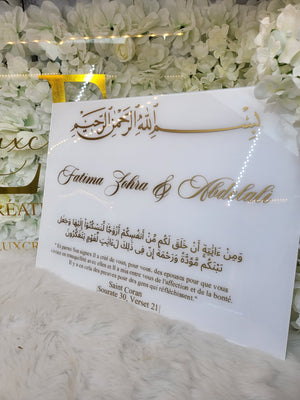 بسم الله الرحمن الرحيم
Fatima Zohra & Abdelali
وَمِنْ ءَايَٰتِهِۦٓ أَنْ خَلَقَ لَكُم مِّنْ أَنفُسِكُمْ أَزْوَٰجًا لِّتَسْكُنُوٓا۟ إِلَيْهَا وَجَعَلَ
بَيْنَكُم مَّوَدَّةً وَرَحْمَةً إِنَّ فِى ذَٰلِكَ لَءَايَٰتٍ لِّقَوْمٍ يَتَفَكَّرُونَ
"Et parmi Ses signes Il a créé de vous, pour vous, des épouses pour que vous
viviez en tranquillité avec elles et Il a mis entre vous de l'affection et de la bonté.
Il y a en cela des preuves pour des gens qui réfléchissent."
Saint Coran
Sourate 30, Verset 21